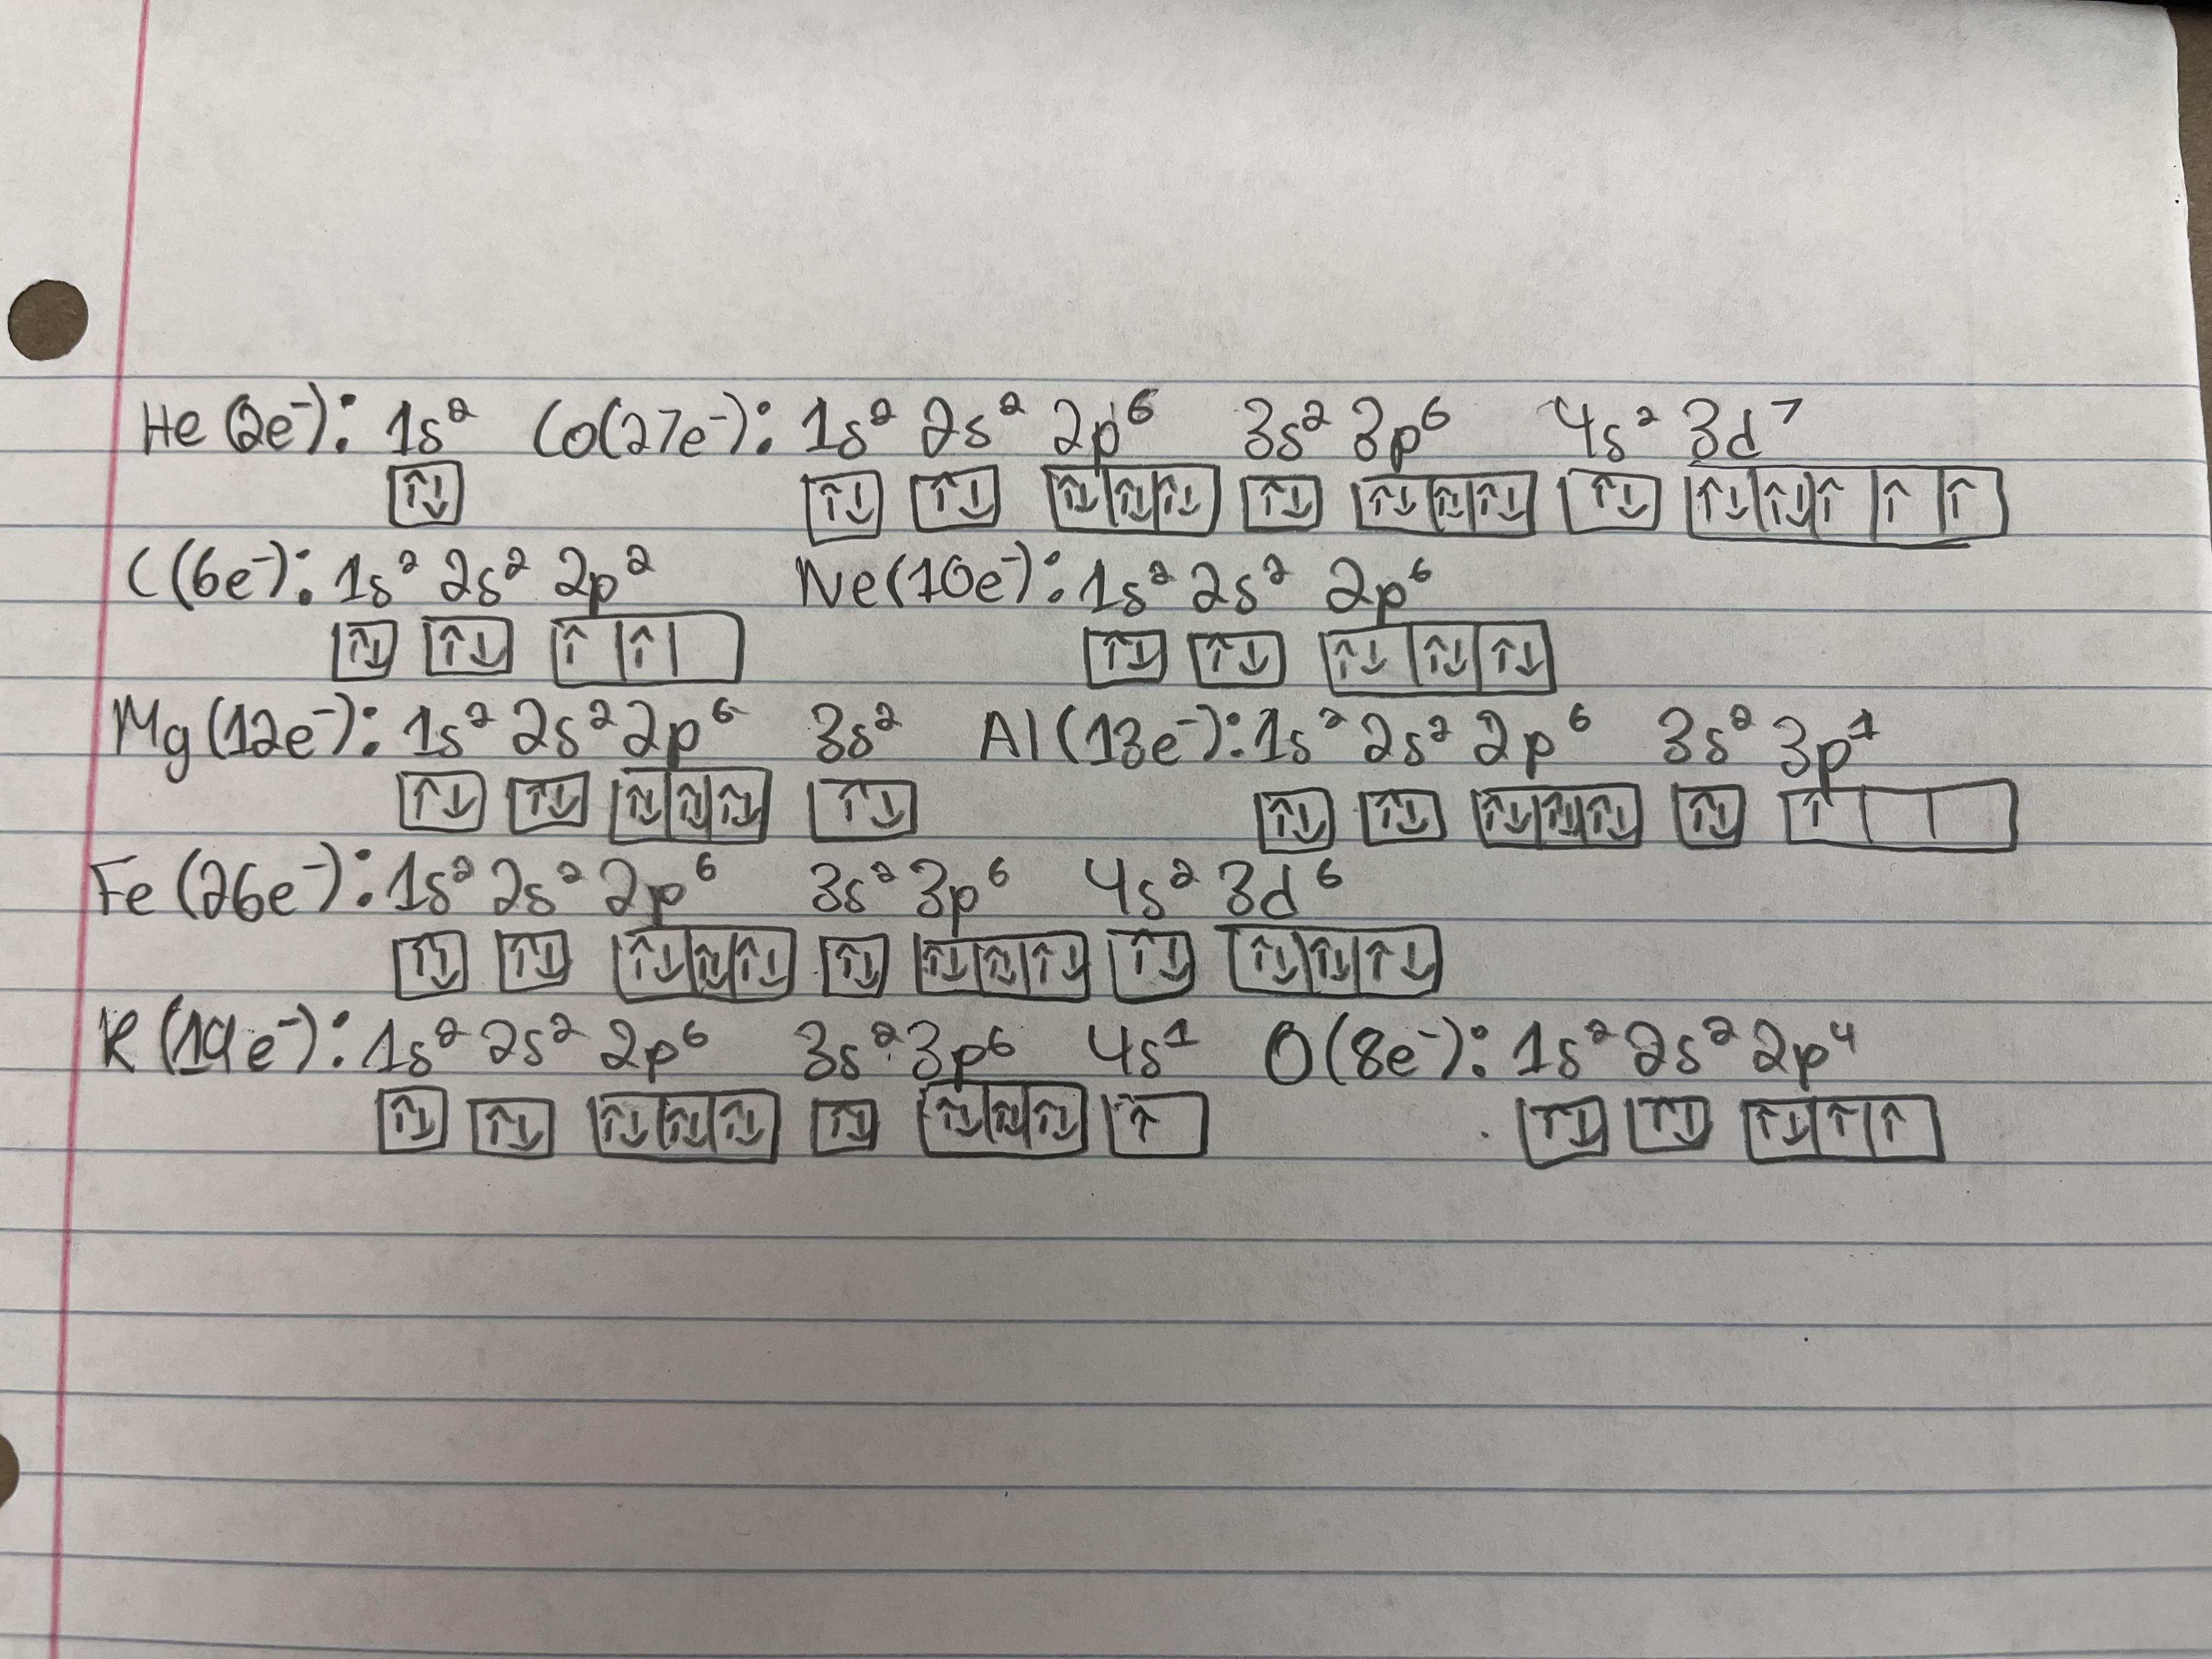 He (2e⁻): 1s² Co(27e⁻): 1s² 2s² 2p⁶ 3s² 3p⁶ 4s² 3d⁷
↑↓ ↑↓ ↑↓ ↑↓ ↑↓ ↑↓ ↑↓ ↑↓ ↑↓ ↑↓ ↑↓ ↑↓ ↑↓ ↑ ↑ ↑
C (6e⁻): 1s² 2s² 2p² Ne(10e⁻): 1s² 2s² 2p⁶
↑↓ ↑↓ ↑ ↑ ↑↓ ↑↓ ↑↓ ↑↓ ↑↓
Mg (12e⁻): 1s² 2s² 2p⁶ 3s² Al (13e⁻): 1s² 2s² 2p⁶ 3s² 3p¹
↑↓ ↑↓ ↑↓ ↑↓ ↑↓ ↑↓ ↑↓ ↑↓ ↑↓ ↑↓ ↑↓ ↑↓ ↑
Fe (26e⁻): 1s² 2s² 2p⁶ 3s² 3p⁶ 4s² 3d⁶
↑↓ ↑↓ ↑↓ ↑↓ ↑↓ ↑↓ ↑↓ ↑↓ ↑↓ ↑↓ ↑↓ ↑↓ ↑↓
K (19e⁻): 1s² 2s² 2p⁶ 3s² 3p⁶ 4s¹ O (8e⁻): 1s² 2s² 2p⁴
↑↓ ↑↓ ↑↓ ↑↓ ↑↓ ↑↓ ↑↓ ↑↓ ↑↓ ↑ ↑↓ ↑↓ ↑↓ ↑ ↑